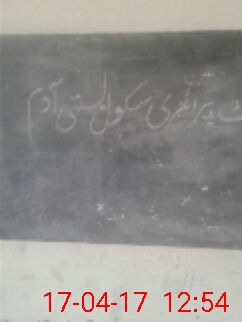 پرائمری سکول بستی آدم
17-04-17 12:54